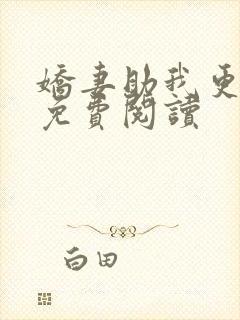 嬌妻助我更
免費閱讀
白田